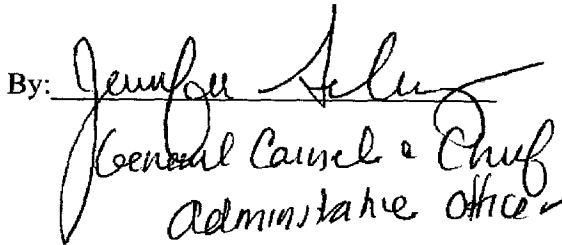 By: Jennifer
General Counsel & Chief
Administrative Officer